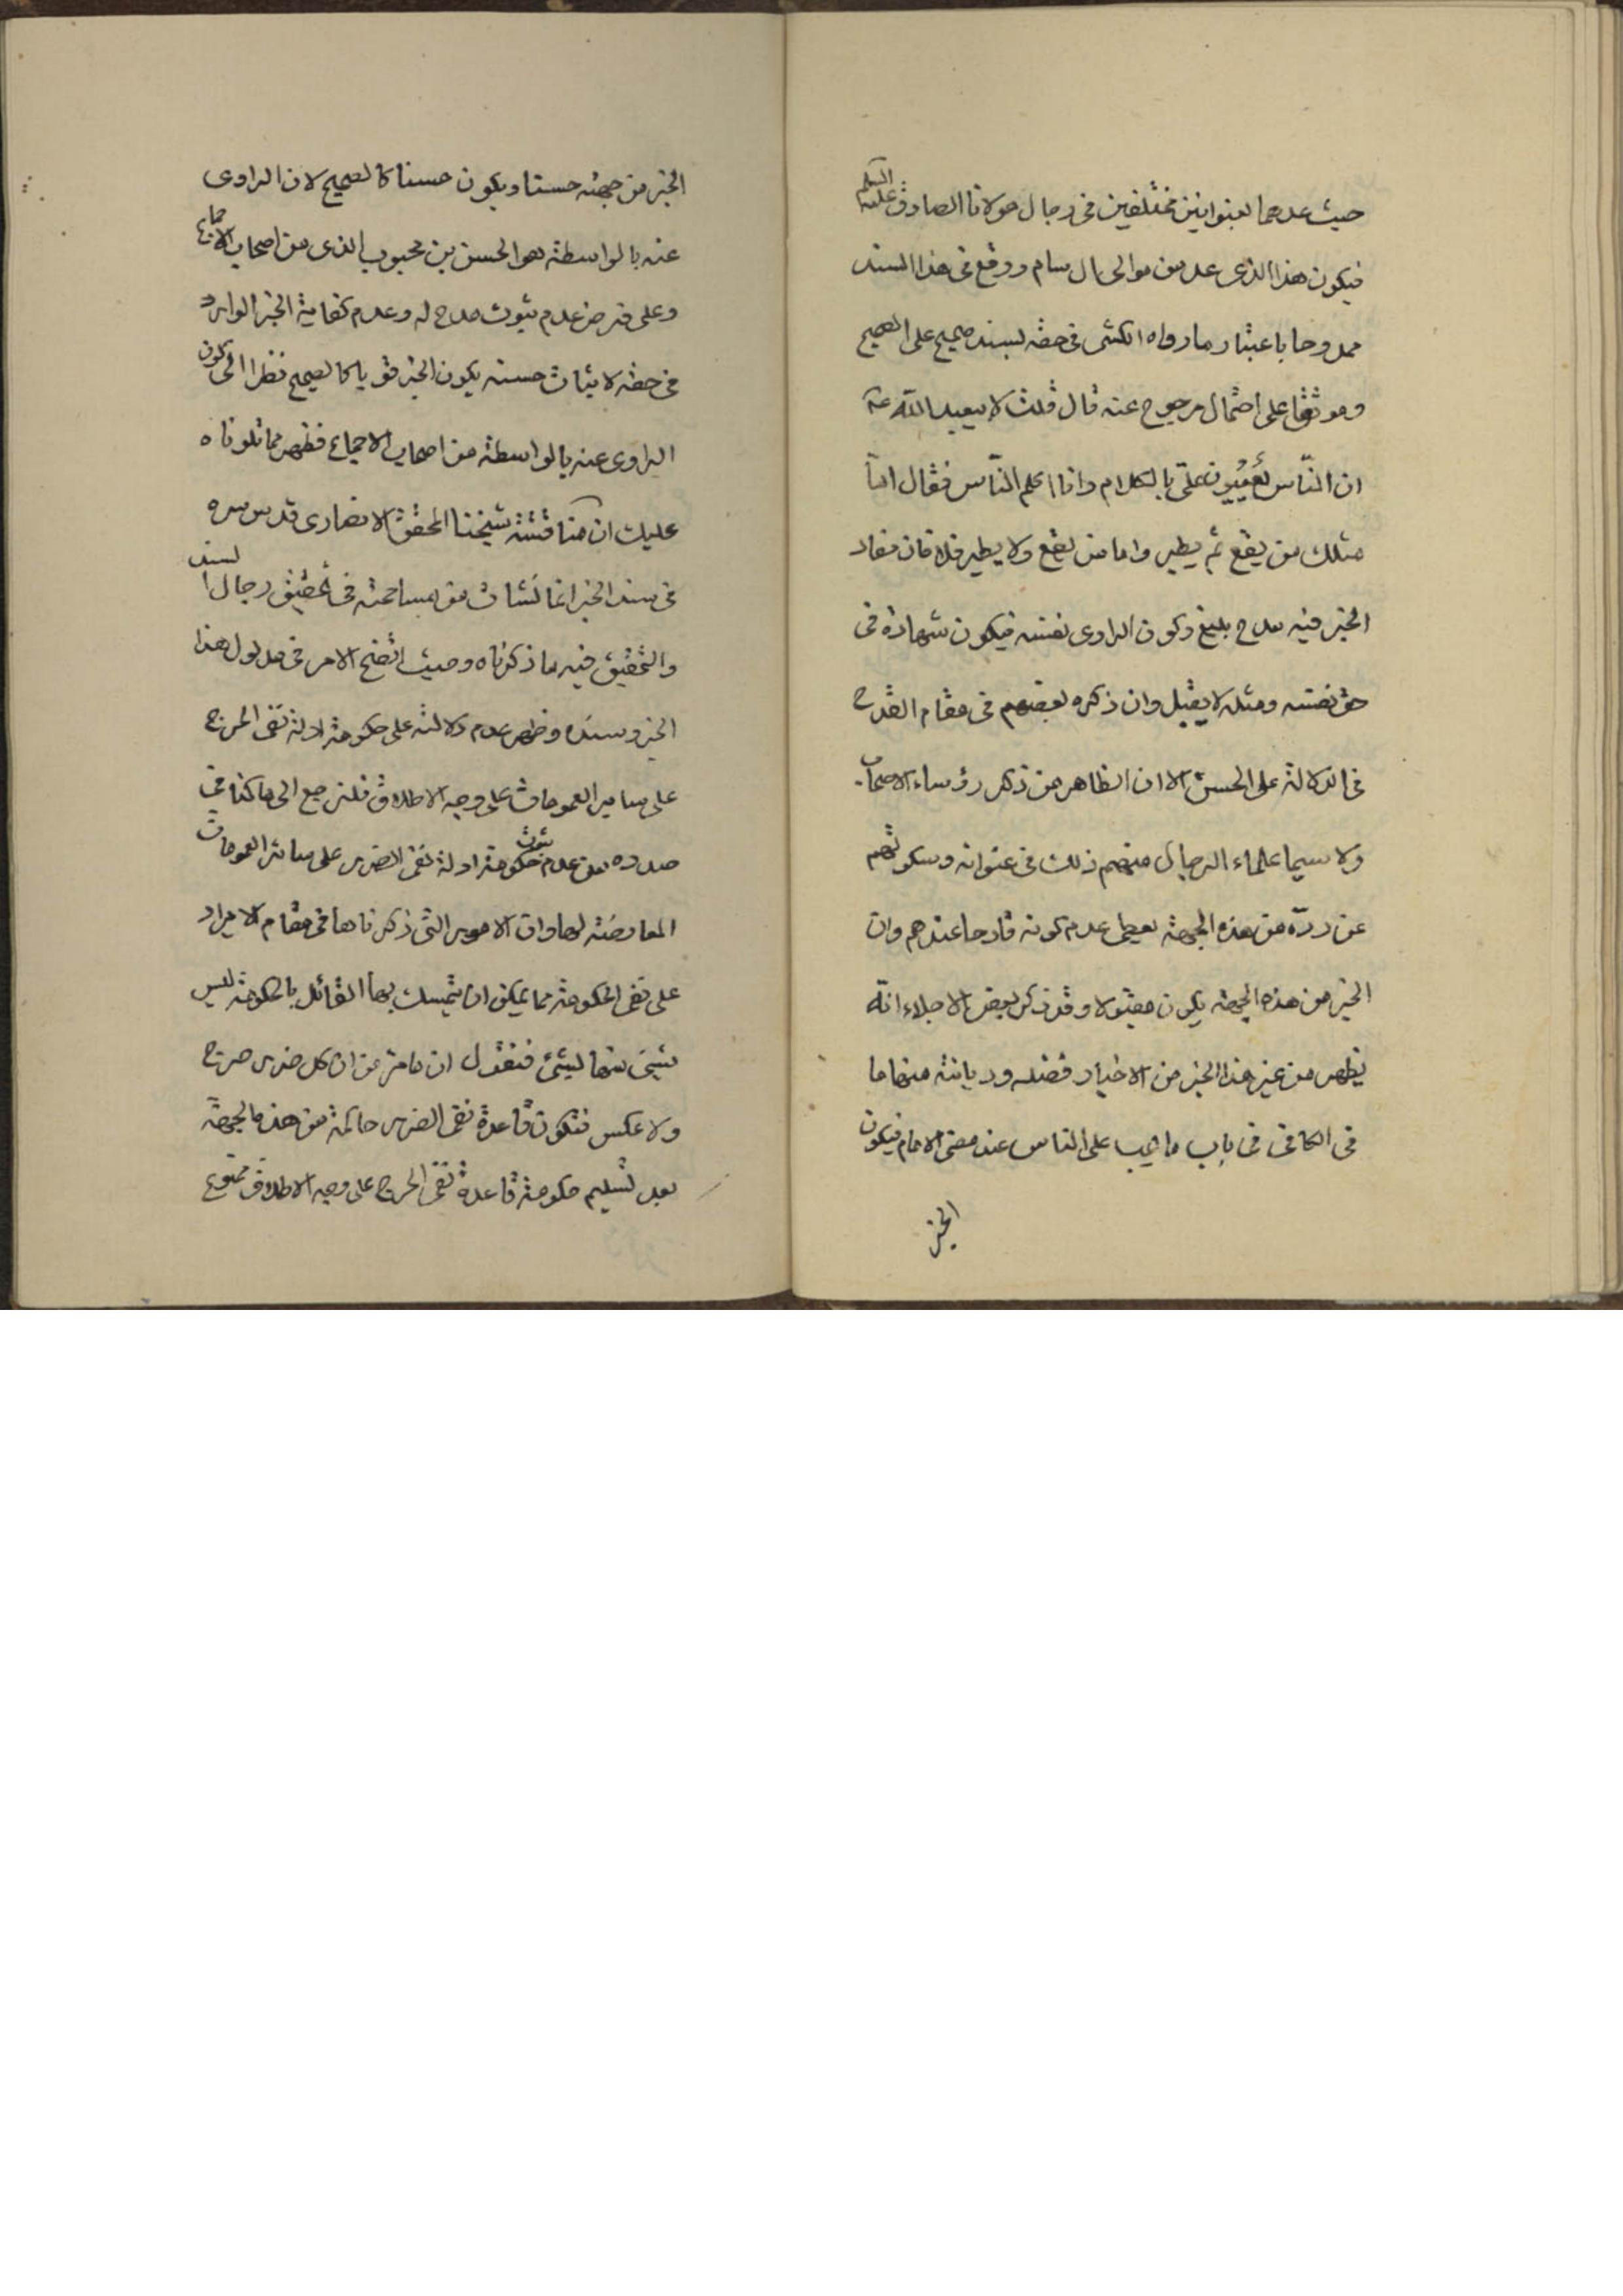 حيث عدهما بعنوانين مختلفين في رجال مولانا الصادق عليه السلم
فيكون هذا الذي عد من موالي ال سام ووقع في هذا السند
ممدوحا باعتبار ما رواه الكشي في حقه بسند صحيح على الصحيح
وموثقا على احتمال مرجوح عنه قال قلت لابيعبد الله عه
ان الناس يُعَيِّبون علىّ بالكلام وانا اكلم النّاس فقال امّا
مثلك من يقع ثم يطير واما من يقع ولا يطير فلا فان مفاد
الخبر فيه مدح بليغ وكون الراوى نفسه فيكون شهادة في
حق نفسه ومثله لا يقبل وان ذكره بعضهم في مقام القدح
في الدلالة على الحسن الا ان الظاهر من ذكر رؤساء الاصحاب
ولا سيما علماء الرجال منهم ذلك في عنوانه وسكوتهم
عن ردّه من هذه الجهة يعطى عدم كونه قادحا عندهم وان
الخبر من هذه الجهة يكون مقبولا وقد ذكر بعض الاجلاء انّه
يظهر من غير هذا الخبر من الاخبار فضله وديانته منها ما
في الكافى في باب ما يجب على الناس عند مضى الامام فيكون
الخبر
الخبر من جهته حسنا ويكون حسنا كالصحيح لان الراوى
عنه بالواسطة هو الحسن بن محبوب الذى من اصحاب الاجماع
وعلى فرض عدم ثبوت مدح له وعدم كفاية الخبر الوارد
في حقه لاثبات حسنه يكون الخبر قويا كالصحيح نظرا الى كون
الراوى عنه بالواسطة من اصحاب الاجماع فظهر مما تلوناه
عليك ان مناقشة شيخنا المحقق الانصارى قدس سره
في سند الخبر انما نشات من مسامحته في تحقيق رجال السند
والتحقيق فيه ما ذكرناه وحيث اتضح الامر في مدلول هذا
الخبر وسنده وظهر عدم دلالته على حكومة ادلة نفى الحرج
على ساير العمومات على وجه الاطلاق فلنرجع الى ما كنا في
صدده من عدم ثبوت حكومة ادلة نفى الضرر على سائر العمومات
المعارضة لها وان الامور التى ذكرناها في مقام الايراد
على نفى الحكومة مما يمكن ان يتمسك بها القائل بالحكومة ليس
شيئ منها بشيئ فنقول ان ما مر من ان كل ضرر حرج
ولا عكس فتكون قاعدة نفى الضرر حاكمة من هذه الجهة
بعد تسليم حكومة قاعدة نفى الحرج على وجه الاطلاق ممنوع